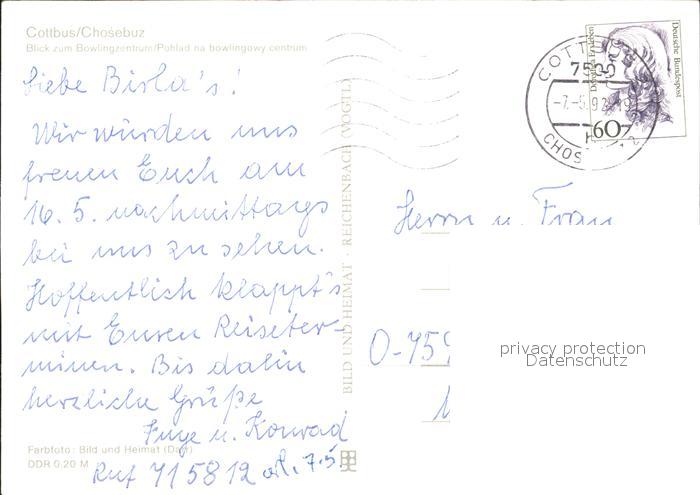 Cottbus/Chośebuz
Blick zum Bowlingzentrum/Pohlad na bowlingowy centrum
Liebe Birla's!
Wir würden uns
freuen Euch am
16.5. nachmittags
bei uns zu sehen.
Hoffentlich klappt's
mit Euren Reiseter-
minen. Bis dahin
herzliche Grüße
Inge u. Konrad
Farbfoto: Bild und Heimat
DDR 0,20 M
Ruf 715812
7.5
BILD UND HEIMAT · REICHENBACH (VOGTL)
COTTBUS
-7.-5.92-19
Deutsche Bundespost
60
Herrn u. Frau
O-759
privacy protection
Datenschutz